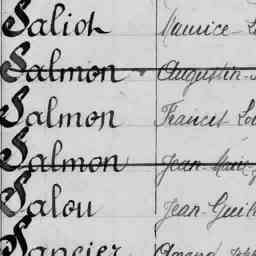 Saliot Maurice
Salmon Augustin
Salmon Francis
Salmon Jean-Marie
Salou Jean-Guil
Sancier Amand